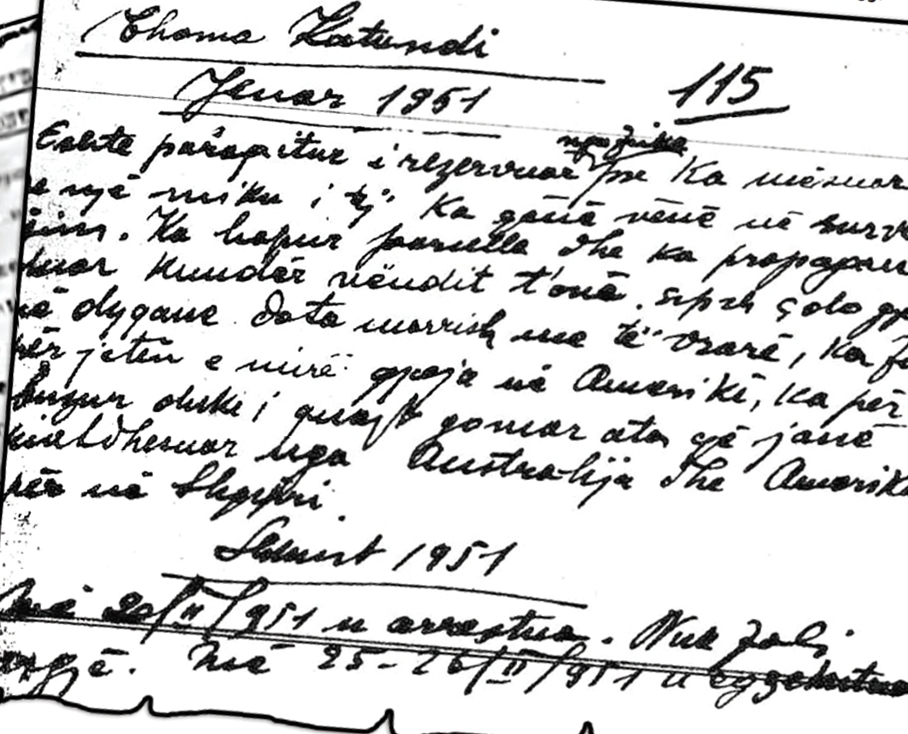 Thoma Katundi
115
Jenar 1951
Eshte paraqitur i rezervuar nga frika pse Ka mësuar
një miku i tij Ka qënë vënë në surve
Ka hapur parulla dhe ka propagan
kundër vëndit t'onë.
në dygane. Do ta marrish me të vrarë, Ka
për jetën e mirë gjoja në Amerikë, Ka për
dhe i quajt gomar ata që janë
kthedhesuar nga Australija dhe Amerika
për në Shqipëri.
Shkurt 1951
Më 20/II/951 u arrestua. Nuk foli
asgjë. Më 25-26/II/951 u egzekutua